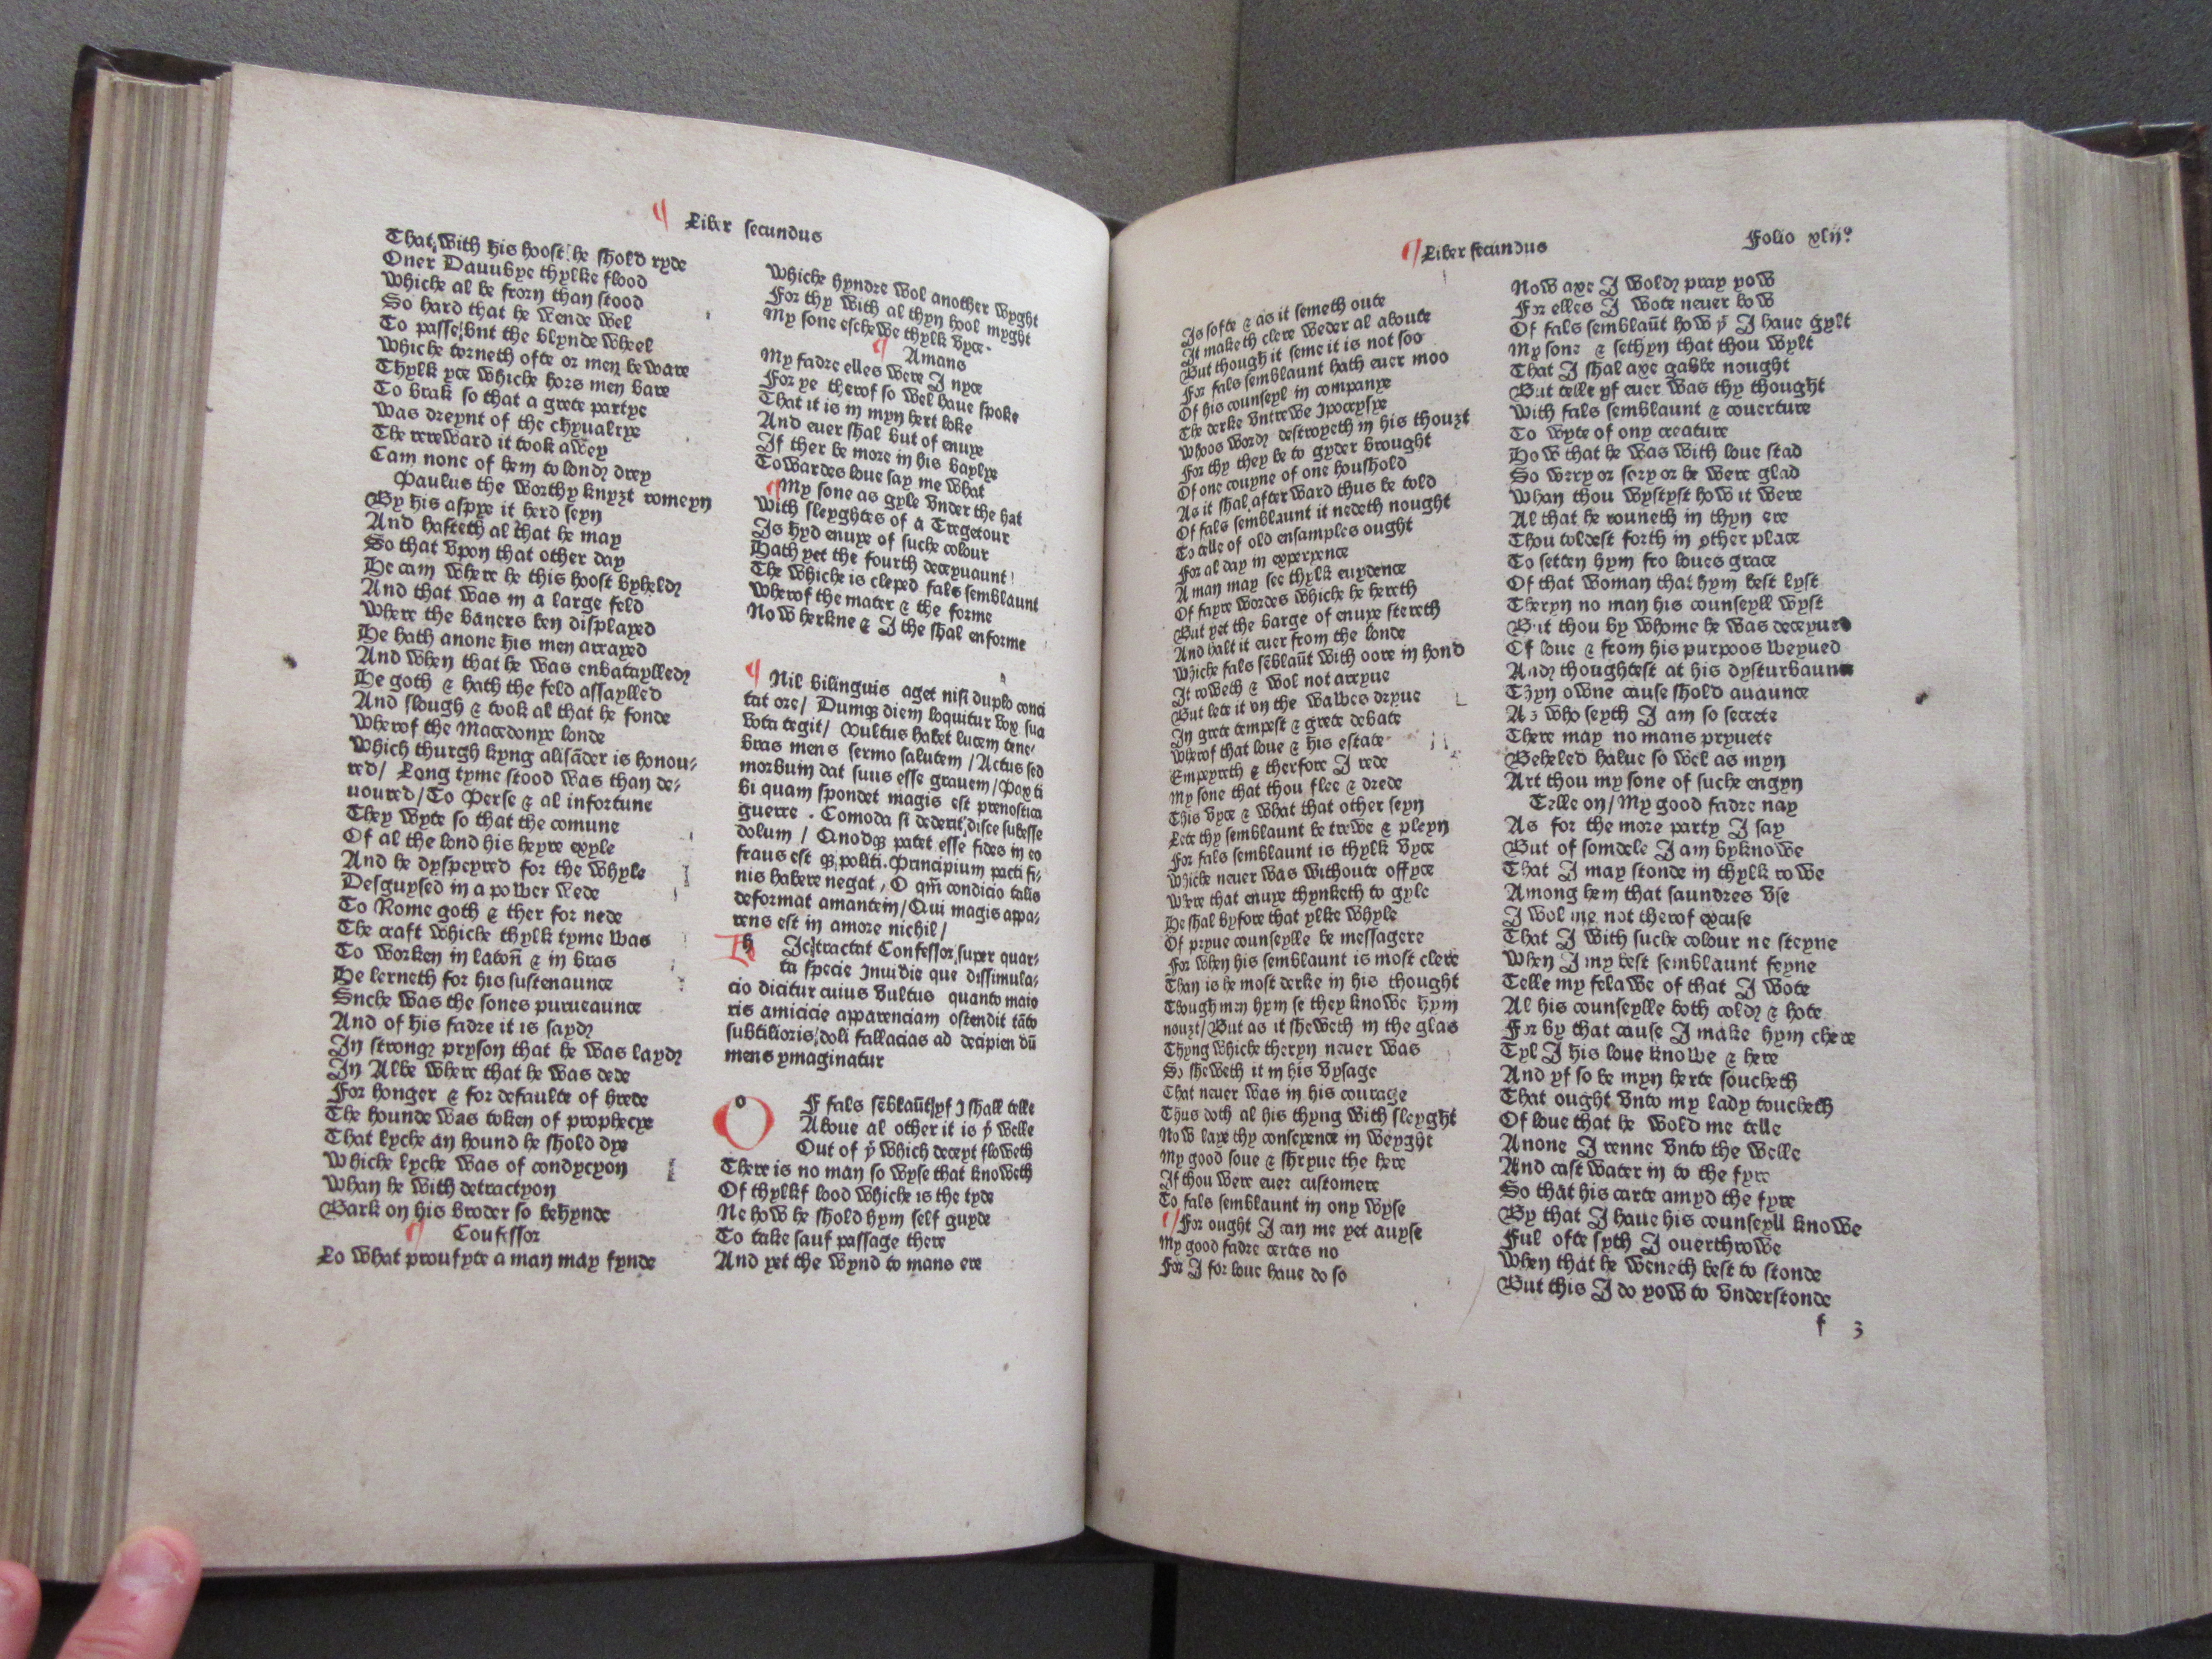 ¶ Liber secundus
That with his hoost he shold ryde
Oner Dauubye thylke flood
Whiche al be frorn than stood
So hard that he wende wel
To passe/bnt the blynde wheel
Whiche torneth ofte or men beware
Thylk yce whiche hors men bare
To brak so that a grete partye
Was dreynt of the chyualrye
The rereward it took awey
Cam none of hem to lond drey
Paulus the worthy knyzt romeyn
By his aspye it herd seyn
And hasteth al that he may
So that vpon that other day
He cam where he this hoost byheld
And that was in a large feld
Where the baners ben displayed
He hath anone his men arrayed
And when that he was enbataylled
He goth & hath the feld assaylled
And slough & took al that he fonde
Wherof the Macedonye londe
Which thurgh kyng alisāder is honou-
red/ Long tyme stood was than de-
uoured/To Perse & al infortune
They wyte so that the comune
Of al the lond his heyre exyle
And he dyspeyred for the whyle
Desguysed in a power wede
To Rome goth & ther for nede
The craft whiche thylk tyme was
To worken in latoñ & in bras
He lerneth for his sustenaunce
Snche was the sones purueaunce
And of his fadre it is sayd
In strong pryson that he was layd
In Albe where that he was dede
For honger & for defaulte of brede
The hounde was token of prophecye
That lyche an hound he shold dye
Whiche lyche was of condycyon
Whan he with detractyon
Bark on his broder so behynde
¶ Coufessor
Lo what proufyte a man may fynde
Whiche hyndre wol another wyght
For thy with al thyn hool myght
My sone eschewe thylk vyce.
¶ Amans
My fadre elles were I nyce
For ye therof so wel haue spoke
That it is in myn hert loke
And euer shal but of enuye
If ther be more in his baylye
Towardes loue say me what
¶My sone as gyle vnder the hat
With sleyghtes of a Tregetour
Is hyd enuye of suche colour
Hath yet the fourth deceyuaunt
The whiche is cleped fals semblaunt
Wherof the mater & the forme
Now herkne & I the shal enforme
¶ Nil bilinguis aget nisi duplo conci
tat ore/ Dumqꝫ diem loquitur vox sua
vota tegit/ Vultus habet lucem tene/
bras mens sermo salutem /Actus sed
morbum dat suus esse grauem/Pax ti
bi quam spondet magis est prenostica
guerre . Comoda si dederit disce subesse
dolum / Qnodqꝫ patet esse fides in eo
fraus est qꝫ politi. Principium pacti fi/
nis habere negat , O qm̄ condicio talis
deformat amantem/Qui magis appa/
rens est in amore nichil/
h Ic tractat Confessor super quar/
ta specie Inuidie que dissimula/
cio dicitur cuius vultus quanto maio
ris amicicie apparenciam ostendit tāto
subtilioris doli fallacias ad decipien dū
mens ymaginatur
O F fals sēblaūt yf I shall telle
Aboue al other it is ẏ welle
Out of ẏ which deceyt floweth
There is no man so wyse that knoweth
Of thylkf lood whiche is the tyde
Ne how he shold hym self guyde
To take sauf passage there
And yet the wynd to mans ere
¶Liber secundus
Folio xlij°
Is softe & as it semeth oute
It maketh clere weder al aboute
But though it seme it is not soo
For fals semblaunt hath euer moo
Of his counseyl in companye
The derke vntrewe Ipocrysye
Whoos word destroyeth in his thouzt
For thy they be to gyder brought
Of one couyne of one houshold
As it shal after ward thus be told
Of fals semblaunt it nedeth nought
To telle of old ensamples ought
For al day in experyence
A man may see thylk euydence
Of fayre wordes whiche he hereth
But yet the barge of enuye stereth
And halt it euer from the londe
Whiche fals sēblaūt with oore in hond
It roweth & wol not arryue
But lete it on the wawes dryue
In grete tempest & grete debate
Wherof that loue & his estate
Empeyreth & therfore I rede
My sone that thou flee & drede
This vyce & what that other seyn
Lete thy semblaunt be trewe & pleyn
For fals semblaunt is thylk vyce
Whiche neuer was withoute offyce
Where that enuye thynketh to gyle
He shal byfore that ylke whyle
Of pryue counseylle be messagere
For when his semblaunt is most clere
Than is he most derke in his thought
Though men hym se they knowe hym
nouzt/But as it sheweth in the glas
Thyng whiche theryn neuer was
So sheweth it in his vysage
That neuer was in his courage
Thus doth al his thyng with sleyght
Now laye thy conseyence in weyght
My good soue & shryue the here
If thou were euer customere
To fals semblaunt in ony wyse
¶For ought I can me yet auyse
My good fadre certes no
For I for loue haue do so
Now axe I wold pray yow
For elles I wote neuer how
Of fals semblaūt how ẏ I haue gylt
My sone & sethyn that thou wylt
That I shal axe gabbe nought
But telle yf euer was thy thought
With fals semblaunt & couerture
To wyte of ony creature
How that he was with loue stad
So were or sory or be were glad
Whan thou wystyst how it were
Al that he rouneth in thyn ere
Thou toldest forth in other place
To setten hym fro loues grace
Of that woman that hym best lyst
Theryn no man his counseyll wyst
But thou by whome he was deceyued
Of loue & from his purpoos weyued
And thoughtest at his dysturbaunce
Thyn owne cause shold auaunce
As who seyth I am so secrete
There may no mans pryuete
Beheled halue so wel as myn
Art thou my sone of suche engyn
Telle on/My good fadre nay
As for the more party I say
But of somdele I am byknowe
That I may stonde in thylk rowe
Among hem that saundres vse
I wol me not therof excuse
That I with suche colour ne steyne
When I my best semblaunt feyne
Telle my felawe of that I wote
Al his counseylle both cold & hote
For by that cause I make hym chere
Tyl I his loue knowe & here
And yf so be myn herte soucheth
That ought vnto my lady toucheth
Of loue that he wold me telle
Anone I renne vnto the welle
And cast water in to the fyre
So that his carte amyd the fyre
By that I haue his counseyll knowe
Ful ofte syth I ouerthrowe
When that he weneth best to stonde
But this I do yow to vnderstonde
f 3